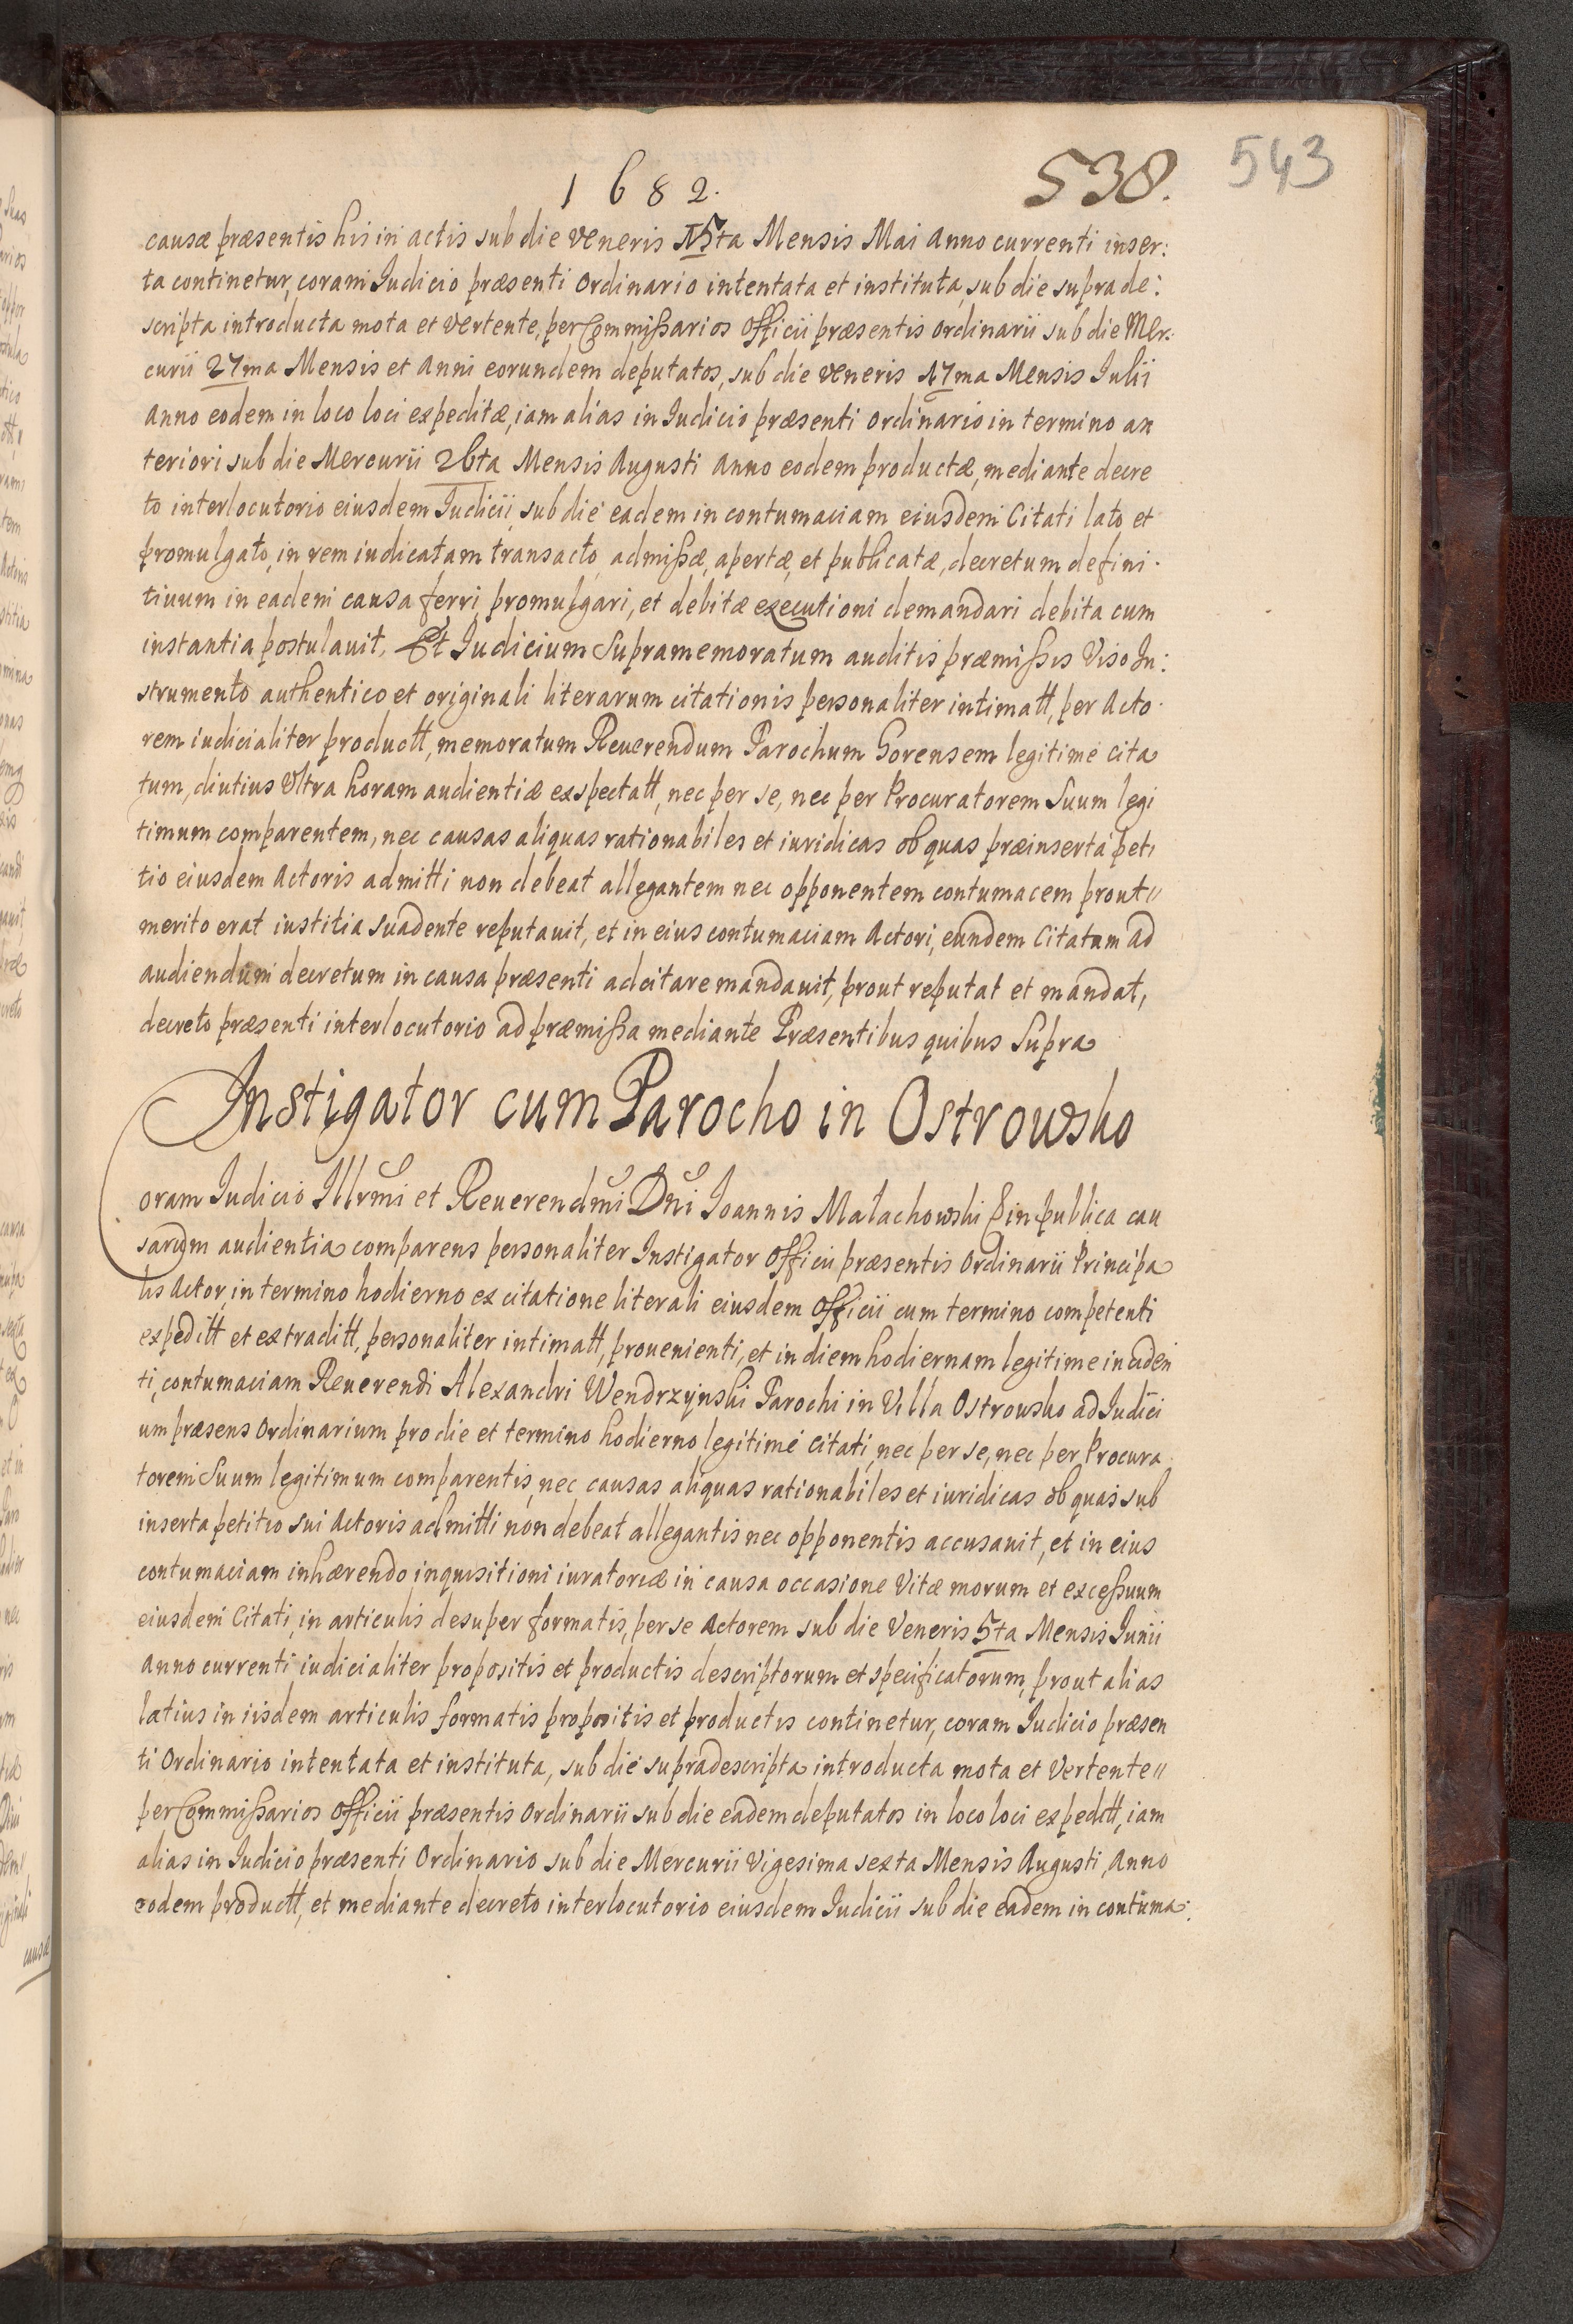 1682.
538.
543
causæ præsentis his in actis sub die Veneris 15ta Mensis Mai Anno currenti inser:
ta continetur, coram Iudicio præsenti Ordinario intentata et instituta, sub die suprade:
scripta introducta mota et vertente, per Commissarios Officii præsentis Ordinarii sub die Mer:
curii 27ma Mensis et Anni eorundem deputatos, sub die Veneris 17ma Mensis Iulii
Anno eodem in loco loci expeditæ, iam alias in Iudicio præsenti Ordinario in termino an
teriori sub die Mercurii 26ta Mensis Augusti Anno eodem productæ, mediante decre
to interlocutorio eiusdem Iudicii, sub die eadem in contumaciam eiusdem Citati lato et
promulgato, in rem iudicatam transacto, admissæ, apertæ, et publicatæ, decretum defini.
tiuum in eadem causa ferri, promulgari, et debitæ executioni demandari debita cum
instantia postulauit. Et Iudicium Supramemoratum auditis præmissis Viso In:
strumento authentico et originali literarum citationis personaliter intimatt, per Acto.
rem iudicialiter productt, memoratum Reuerendum Parochum Gorensem legitime cita
tum, diutius Vltra horam audientiæ exspectatt, nec per se, nec per Procuratorem Suum legi
timum comparentem, nec causas aliquas rationabiles et iuridicas ob quas præinserta peti
tio eiusdem Actoris admitti non debeat allegantem nec opponentem contumacem prout
merito erat iustitia suadente reputauit, et in eius contumaciam Actori, eundem Citatum ad
audiendum decretum in causa præsenti adcitare mandauit, prout reputat et mandat,
decreto præsenti interlocutorio ad præmissa mediante Præsentibus quibus Supra
Instigator cum Parocho in Ostrowsko
Coram Iudicio Illrmi et Reuerendmi Dni Ioannis Małachowski & in publica cau
sarum audientia comparens personaliter Instigator Officii præsentis Ordinarii Principa
lis Actor, in termino hodierno ex citatione literali eiusdem Officii cum termino competenti
expeditt et extraditt, personaliter intimatt, prouenienti, et in diem hodiernam legitime inciden
ti, contumaciam Reuerendi Alexandri Wendrzynski Parochi in Villa Ostrowsko ad Iudici
um præsens Ordinarium pro die et termino hodierno legitime citati, nec per se, nec per Procura
torem Suum legitimum comparentis, nec causas aliquas rationabiles et iuridicas ob quas sub
inserta petitio sui Actoris admitti non debeat allegantis nec opponentis accusauit, et in eius
contumaciam inhærendo inquisitioni iuratoriæ in causa occasione Vitæ morum et excessuum
eiusdem Citati, in articulis desuper formatis, per se Actorem sub die Veneris 5ta Mensis Iunii
Anno currenti iudicialiter propositis et productis descriptorum et specificatorum, prout alias
latius in iisdem articulis formatis propositis et productis continetur, coram Iudicio præsen
ti Ordinario intentata et instituta, sub die supradescripta introducta mota et Vertente
per Commissarios Officii præsentis Ordinarii sub die eadem deputatos in loco loci expeditt, iam
alias in Iudicio præsenti Ordinario sub die Mercurii Vigesima sexta Mensis Augusti, Anno
eodem productt, et mediante decreto interlocutorio eiusdem Iudicii sub die eadem in contuma: